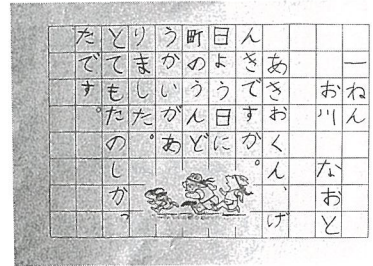 一ねん
お川 なおと
あさおくん、げ
んきですか。
日よう日に
町のうんど
うかいがあ
りました。
とてもたのしかっ
たです。